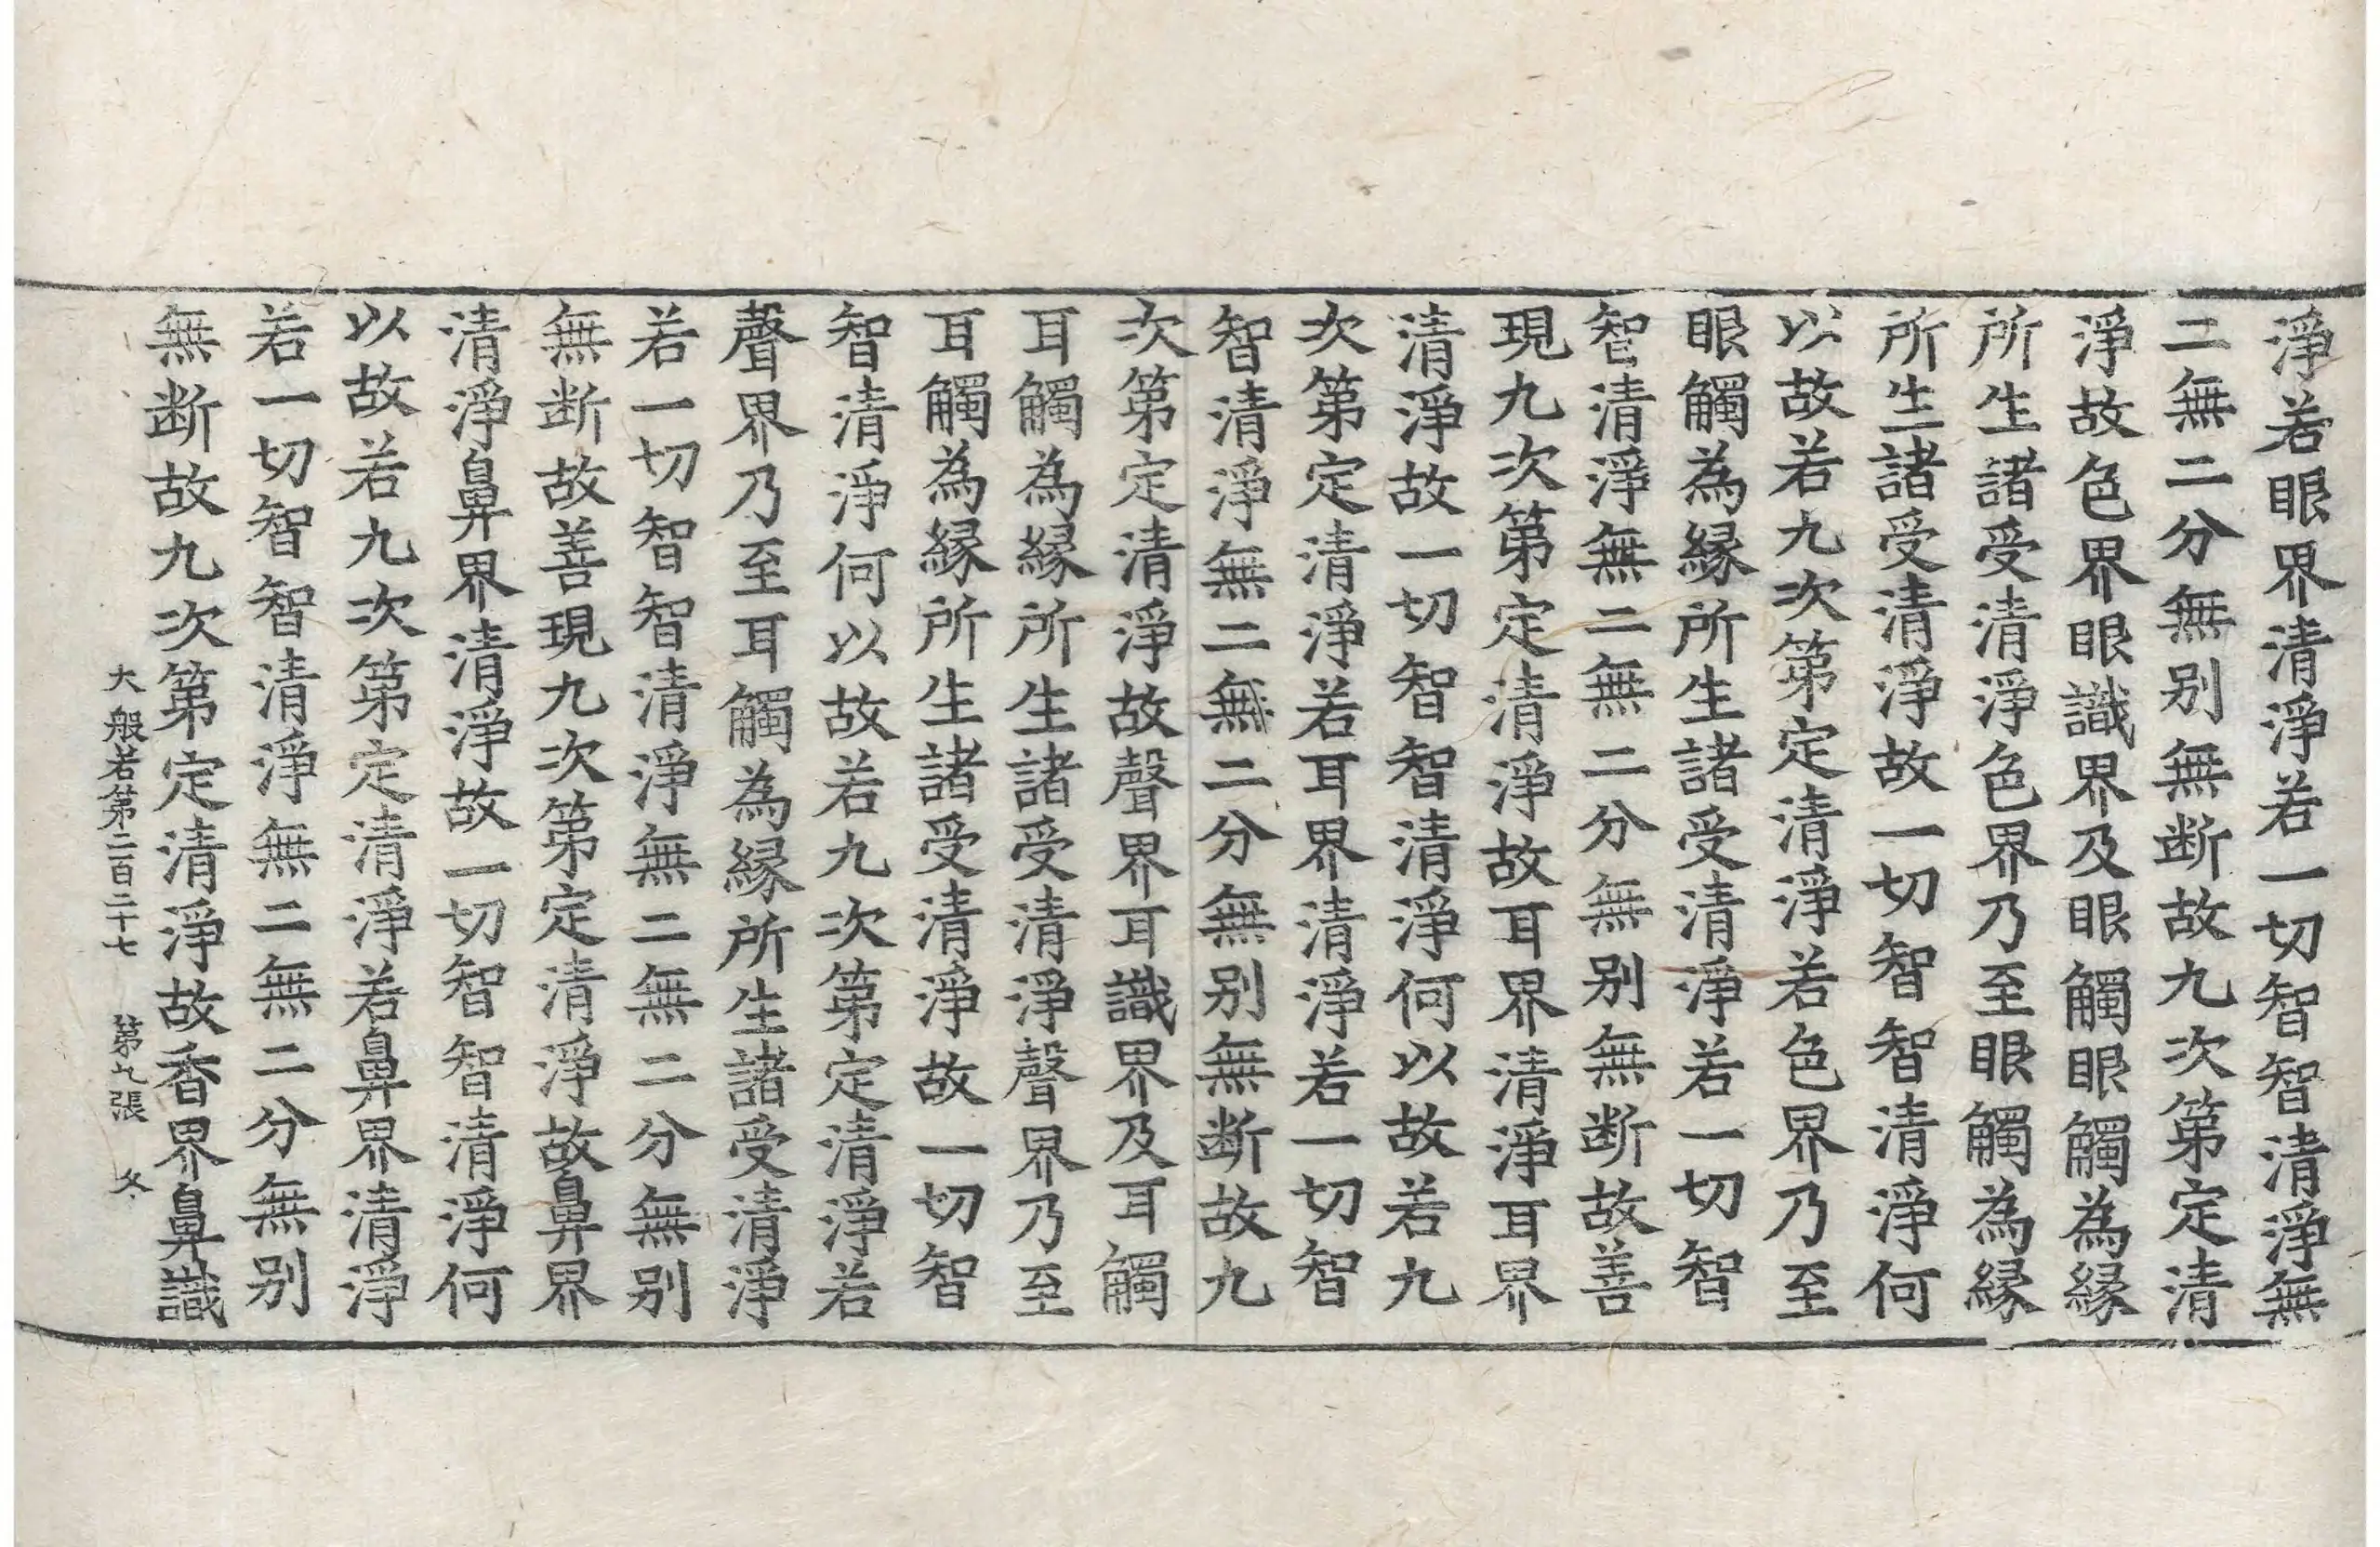 淨若眼界清淨若一切智智清淨無
二無二分無別無断故九次第定清
淨故色界眼識界及眼觸眼觸為縁
所生諸受清淨色界乃至眼觸為縁
所生諸受清淨故一切智智清淨何
以故若九次第定清淨若色界乃至
眼觸為縁所生諸受清淨若一切智
智清淨無二無二分無別無断故善
現九次第定清淨故耳界清淨耳界
清淨故一切智智清淨何以故若九
次第定清淨若耳界清淨若一切智
智清淨無二無二分無別無断故九
次第定清淨故聲界耳識界及耳觸
耳觸為縁所生諸受清淨聲界乃至
耳觸為縁所生諸受清淨故一切智
智清淨何以故若九次第定清淨若
聲界乃至耳觸為縁所生諸受清淨
若一切智智清淨無二無二分無別
無断故善現九次第定清淨故鼻界
清淨鼻界清淨故一切智智清淨何
以故若九次第定清淨若鼻界清淨
若一切智智清淨無二無二分無別
無断故九次第定清淨故香界鼻識
大般若第二百二十七 第九張